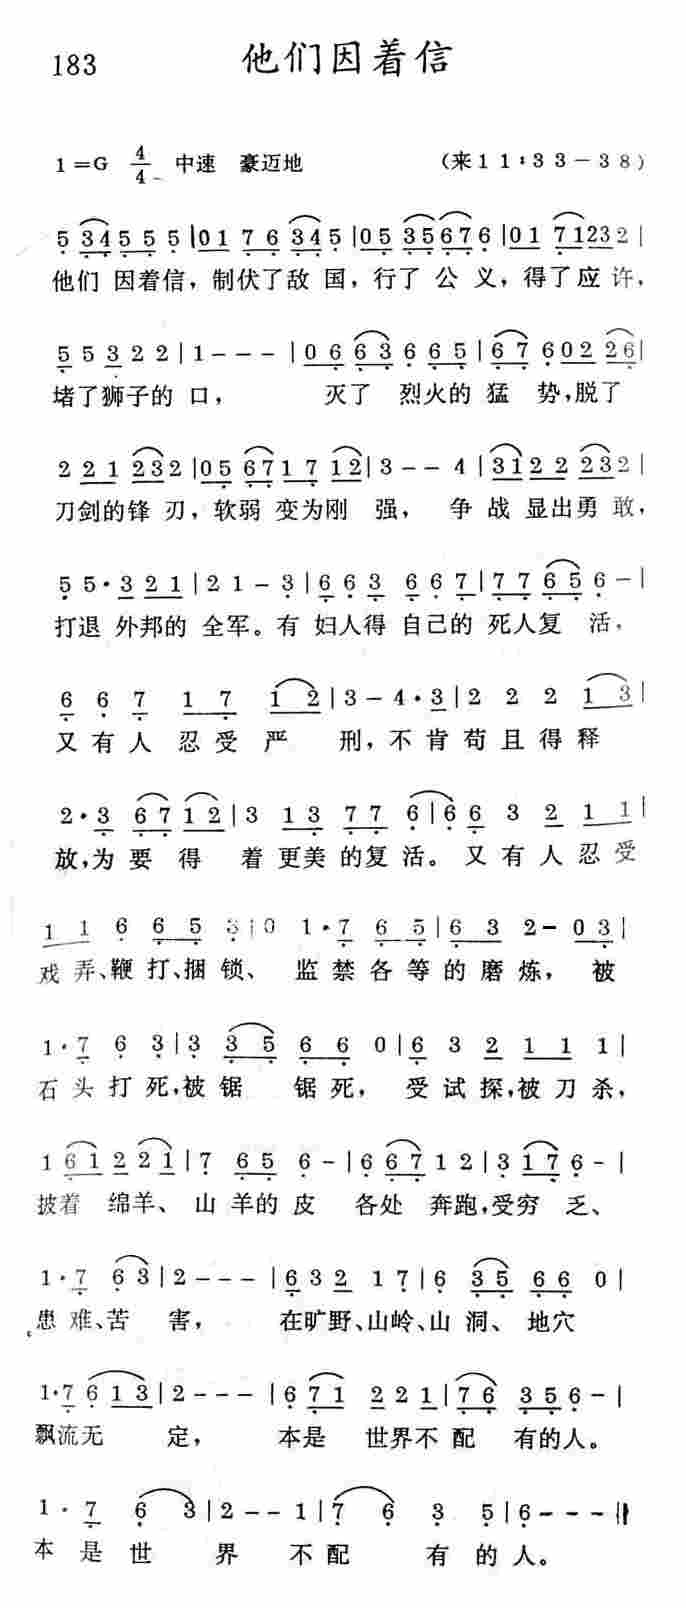 183 他们因着信
1=G 4/4 中速 豪迈地 (来11:33-38)
5 34 5 5 5 | 01 76 34 5 | 05 35 676 | 01 71 232 |
他们 因着信,制伏了敌 国,行了 公 义,得了应 许,
5 5 3 2 2 | 1 - - - | 06 63 6 65 | 67 6 02 26 |
堵了狮子的 口, 灭了 烈火的 猛 势,脱了
2 2 1 232 | 05 67 1 7 12 | 3 - - 4 | 31 2 2 232 |
刀剑的锋 刃,软弱 变为刚 强, 争 战 显出勇 敢,
5 5· 3 2 1 | 2 1 - 3 | 6 6 3 6 6 7 | 7 7 6 5 6 - |
打退 外邦的 全军。有 妇人得 自己的 死人复 活,
6 6 7 1 7 1 2 | 3 - 4 · 3 | 2 2 2 1 3 |
又 有 人 忍 受 严 刑,不 肯 苟 且 得 释
2 · 3 67 12 | 3 13 77 6 | 6 6 3 2 1 1 |
放,为 要 得 着 更美 的复 活。 又 有 人 忍 受
1 1 6 6 5 3 | 0 1 · 7 6 5 | 6 3 2 - 0 3 |
戏 弄、鞭 打、捆 锁、 监 禁 各 等 的 磨 炼, 被
1 · 7 6 3 | 3 3 5 6 6 0 | 6 3 2 1 1 1 |
石 头 打 死,被 锯 锯 死, 受 试 探,被 刀 杀,
1 61 2 21 | 7 6 5 6 - | 6 67 1 2 | 3 17 6 - |
披着 绵羊、山 羊的 皮 各处 奔跑,受穷 乏、
1 · 7 63 | 2 - - - | 6 3 2 1 7 | 6 35 6 6 0 |
患 难、苦 害, 在旷野、山岭、山 洞、地穴
1 · 7 613 | 2 - - - | 6 71 2 2 1 | 76 3 5 6 - |
飘流无 定, 本是 世界不 配 有的人。
1 · 7 6 3 | 2 - - 1 | 7 6 3 5 | 6 - - - ||
本 是 世 界 不 配 有 的 人。